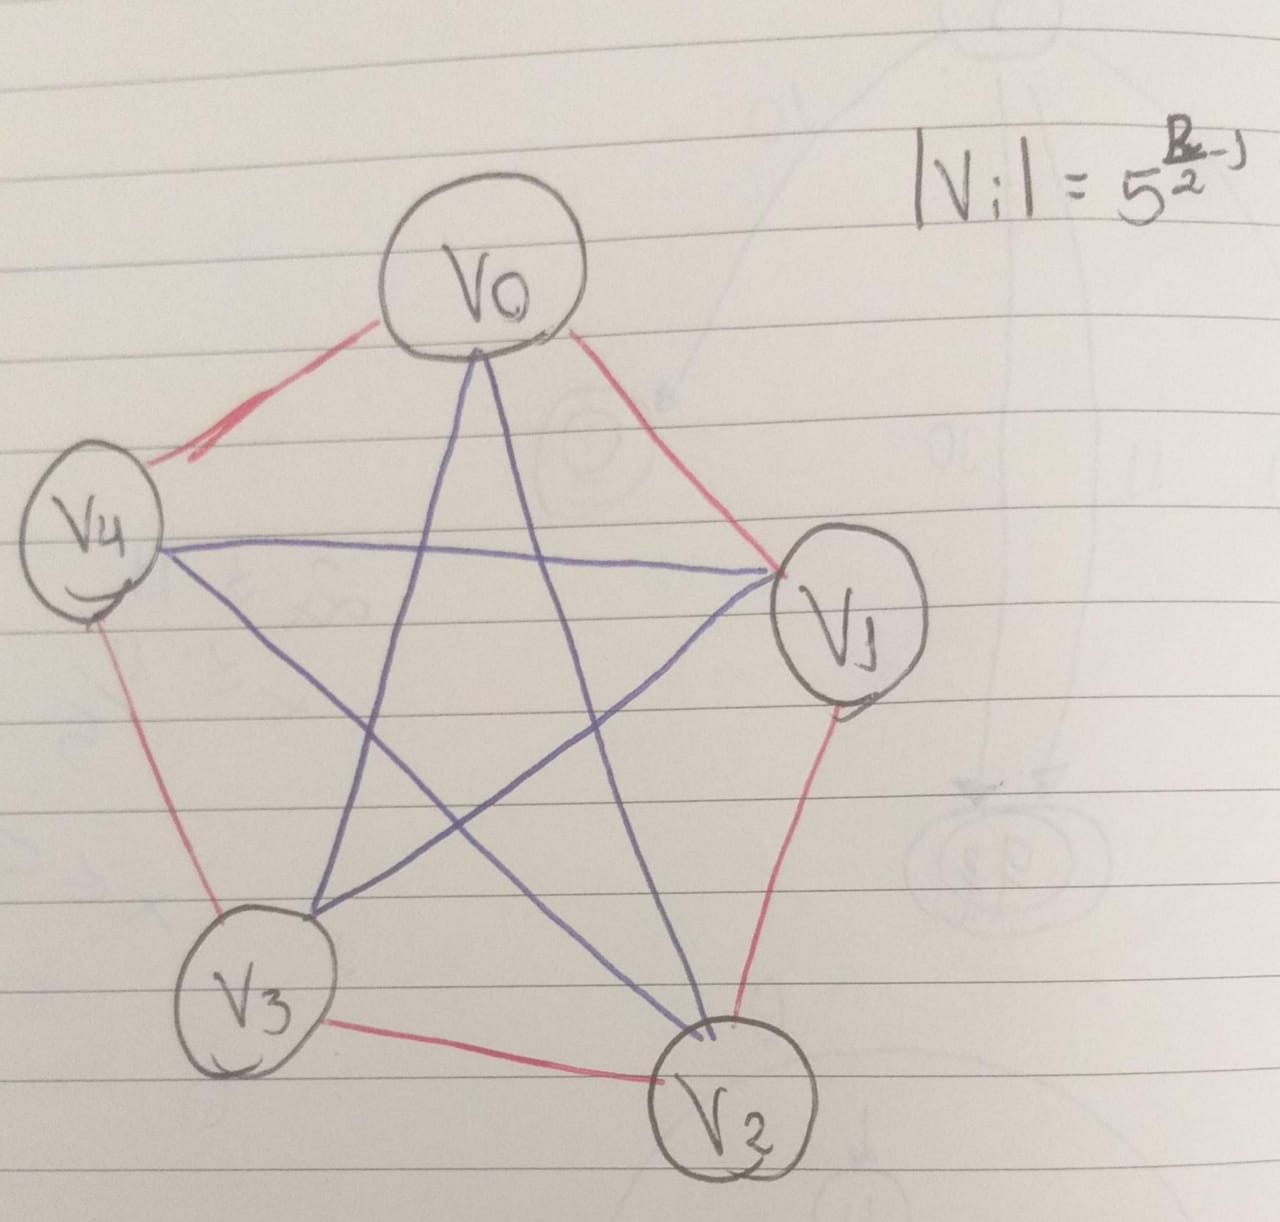 |Vi| = 5
V0
V4
V1
V3
V2